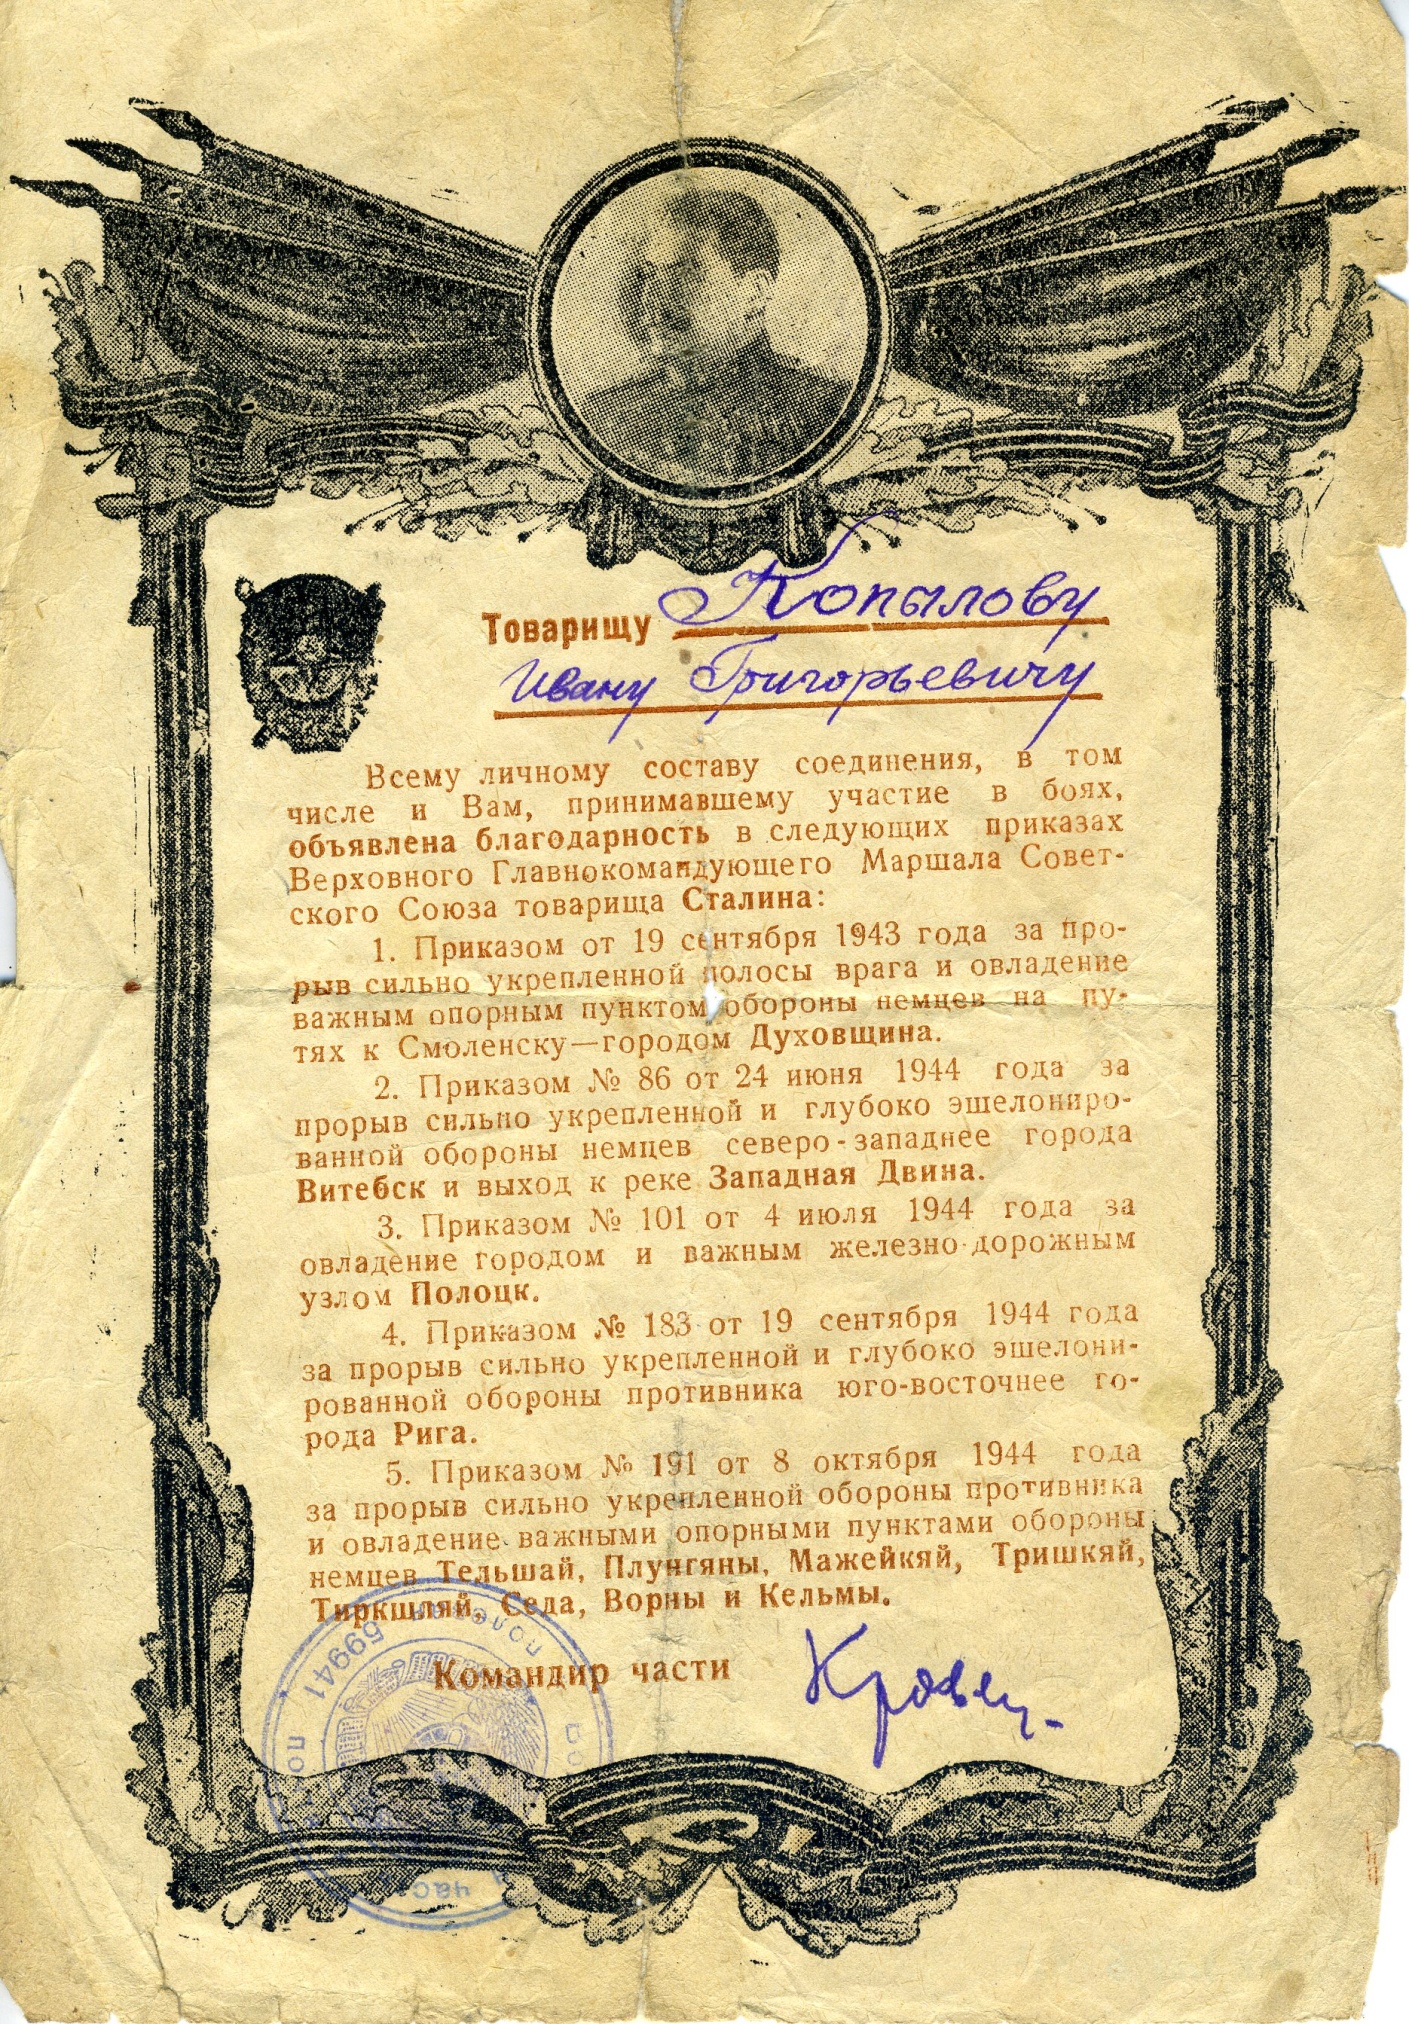 Товарищу Копылову
Ивану Григорьевичу
Всему личному составу соединения, в том
числе и Вам, принимавшему участие в боях,
объявлена благодарность в следующих приказах
Верховного Главнокомандующего Маршала Совет-
ского Союза товарища Сталина:
1. Приказом от 19 сентября 1943 года за про-
рыв сильно укрепленной полосы врага и овладение
важным опорным пунктом обороны немцев на пу-
тях к Смоленску—городом Духовщина.
2. Приказом № 86 от 24 июня 1944 года за
прорыв сильно укрепленной и глубоко эшелониро-
ванной обороны немцев северо-западнее города
Витебск и выход к реке Западная Двина.
3. Приказом № 101 от 4 июля 1944 года за
овладение городом и важным железно-дорожным
узлом Полоцк.
4. Приказом № 183 от 19 сентября 1944 года
за прорыв сильно укрепленной и глубоко эшелони-
рованной обороны противника юго-восточнее го-
рода Рига.
5. Приказом № 191 от 8 октября 1944 года
за прорыв сильно укрепленной обороны противника
и овладение важными опорными пунктами обороны
немцев Тельшай, Плунгяны, Мажейкяй, Тришкяй,
Тиркшляй, Седа, Ворны и Кельмы.
Командир части Кравец
59941